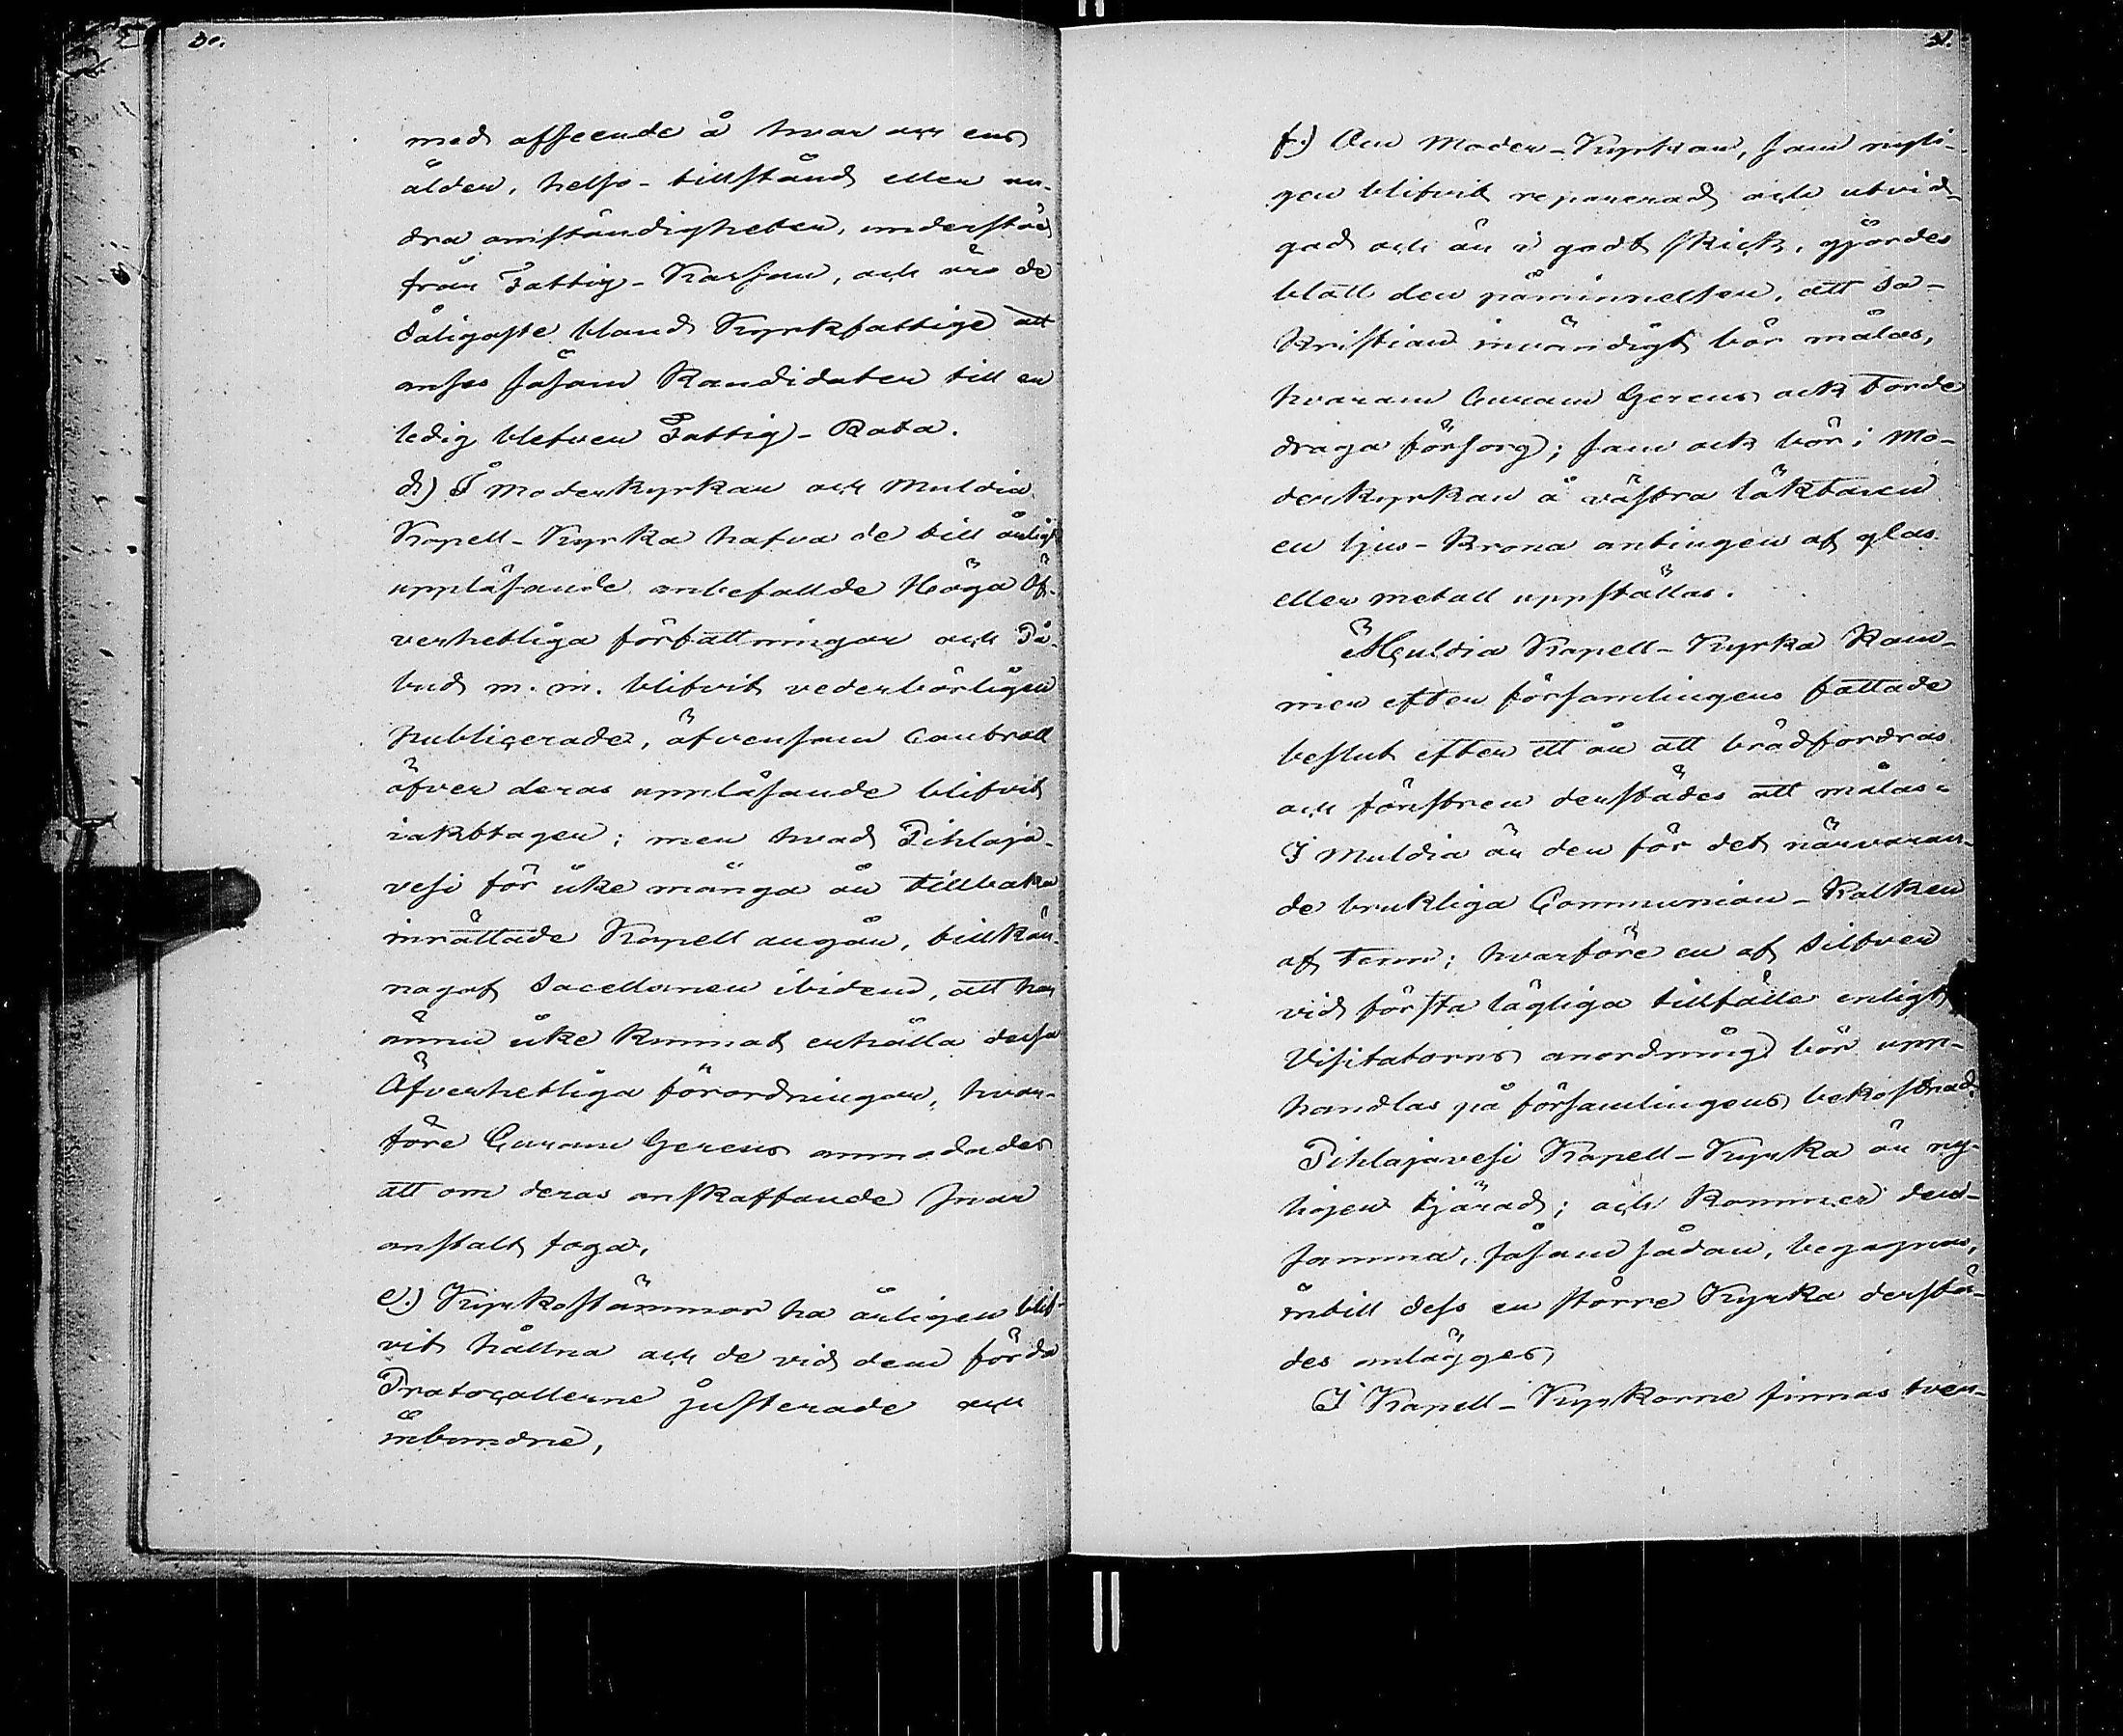 30.
med afseende å hvar och ens
ålder, helso-tillstånd eller an-
dra omständigheter, understöd
från Fattig-Kassan, och äro de
dåligaste bland Kyrkfattige att
anses såsom Kandidater till en
ledig blefven Fattig-Rota.
d) I Moderkyrkan och Muldia
Kapell-Kyrka hafva de till årligt
uppläsande anbefallde Höga Öf-
verhetliga författningar och På-
bud m. m. blifvit vederbörligen
publicerade, äfvensom Controll
öfver deras uppläsande blifvit
iakttagen; men hvad Pihlaja-
vesi för icke många år tillbaka
inrättade Kapell angår, tillkän-
nagaf Sacellanen ibidem, att han
ännu icke kunnat erhålla dessa
Öfverhetliga förordningar, hvar-
före Curam Gerens anmodades
att om deras anskaffande snar
anstalt foga.
e.) Kyrkostämmor ha årligen blif-
vit hållna och de vid dem förda
Protocollerne justerade och
inbundne.
31.
f.) Om Moder-Kyrkan, som nyli-
gen blifvit reparerad och utvid-
gad och är i godt skick, gjordes
blott den påminnelsen, att Sa-
kristian invändigt bör målas,
hvarom Curam Gerens ock torde
draga försorg; som ock bör i Mo-
derkyrkan å västra läktaren
en ljus-Krona antingen af glas
eller metall uppställas.
Muldia Kapell-Kyrka kom-
mer efter församlingens fattade
beslut efter ett år att brädfordras
och fönstren derstädes att målas.
I Muldia är den för det närvaran-
de brukliga Communion-Kalken
af tenn; hvarföre en af Silfver
vid första lägliga tillfälle enligt
Visitatorns anordning bör upp-
handlas på församlingens bekostnad.
Pihlajavesi Kapell-Kyrka är ny-
ligen tjärad; och kommer den-
samma, såsom sådan, begagnas,
intill dess en större Kyrka derstä-
des anlägges.
I Kapell-Kyrkorne finnas tven-